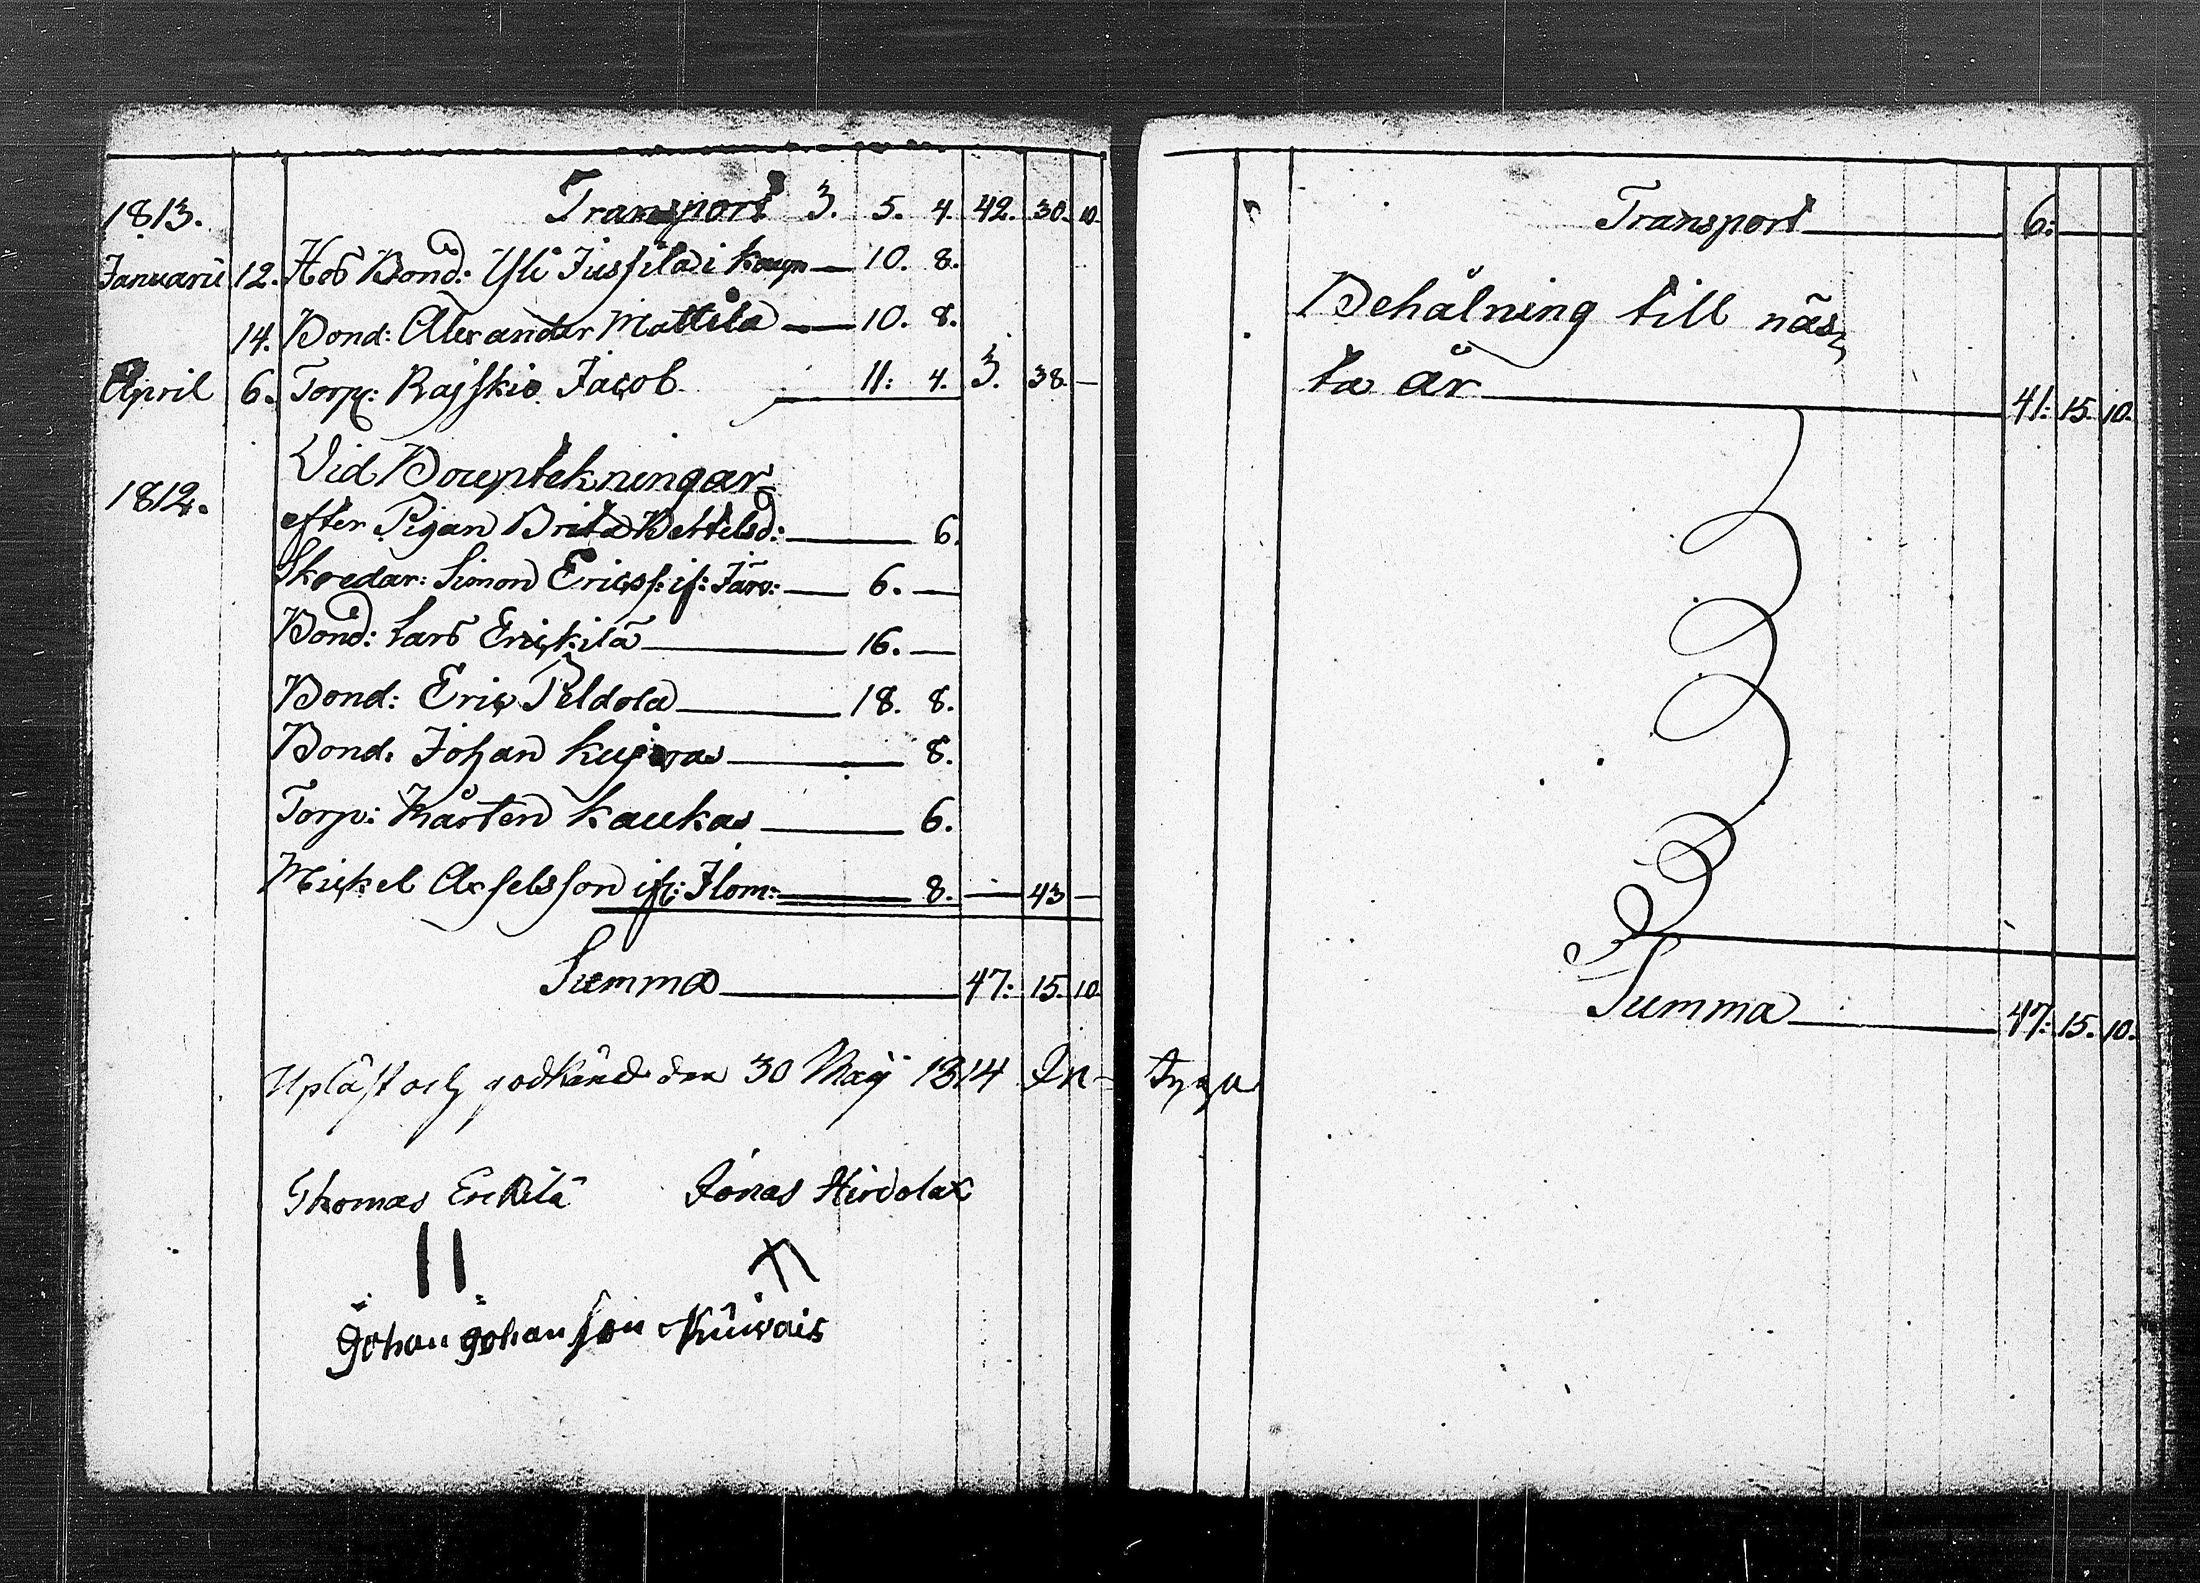 1813. Transport 3. 5. 4. 42. 30. 10.
Januarii 12. Hos Bond: Yli Jussila i — 10. 8.
14. Bond: Alexander Mattila — 10. 8.
April 6. Torp: Rajskio Jacob 11: 4. 3. 38 —
Vid Bouptekningar
1812. efter Pigan Brita Bertelsd: — 6.
Skredar: Simon Ericss: if: Järv: — 6. —
Bond: Lars Erickilä — 16. —
Bond: Eric Peldola — 18. 8.
Bond: Johan Kujvas — 8.
Torp: Mårten Kaukas — 6.
Mickel Axelsson if: Ilom: — 8. — 43 —
Summa — 47: 15. 10.
Upläst och godkänd den 30 Maij 1814 In-
Thomas Erckilä Jonas Hirdolax
Johan Johansson Kuivais
Transport — 6:
Behålning till näs-
ta år — 41: 15. 10.
Summa — 47: 15. 10.
tyga